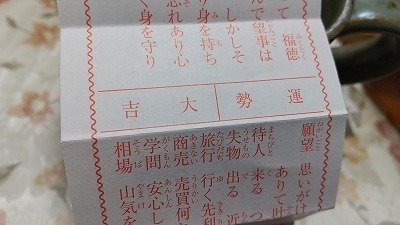 て 福徳
んで望事は
しかしそ
り身を持ち
忘れあり心
く身を守り
運勢 大吉
願望 思いがけ
ありて叶
待人 来る つ
失物 出る 近
旅行 行く先利
商売 売買何
学問 安心し
相場 山気を